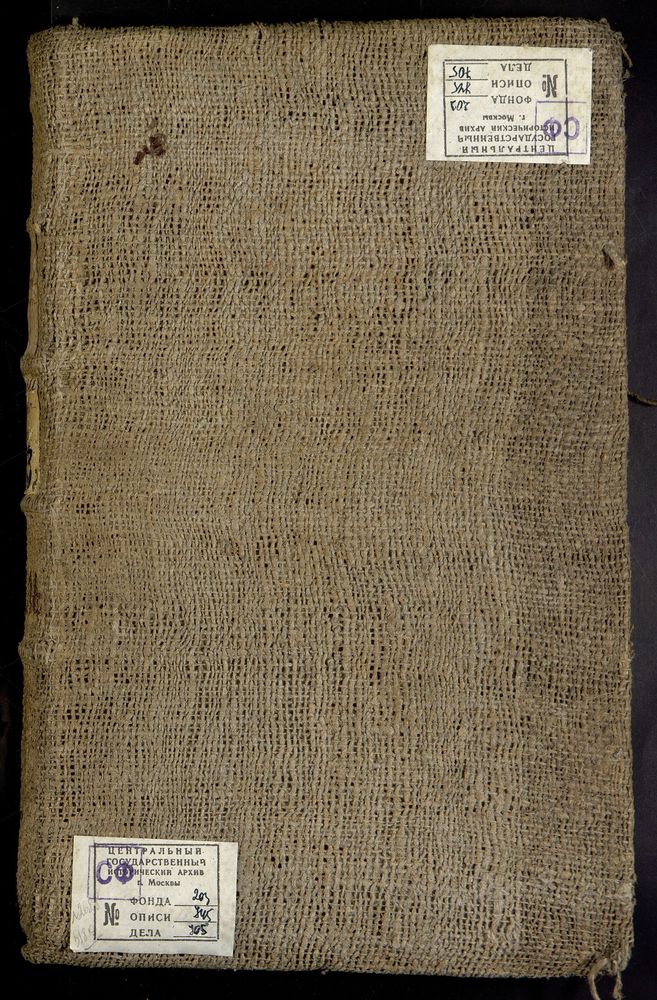 ЦЕНТРАЛЬНЫЙ
ГОСУДАРСТВЕННЫЙ
ИСТОРИЧЕСКИЙ АРХИВ
г. Москвы
СФ
ФОНДА 203
№ ОПИСИ 745
ДЕЛА 705
ЦЕНТРАЛЬНЫЙ
ГОСУДАРСТВЕННЫЙ
ИСТОРИЧЕСКИЙ АРХИВ
г. Москвы
СФ
ФОНДА 203
№ ОПИСИ 745
ДЕЛА 705